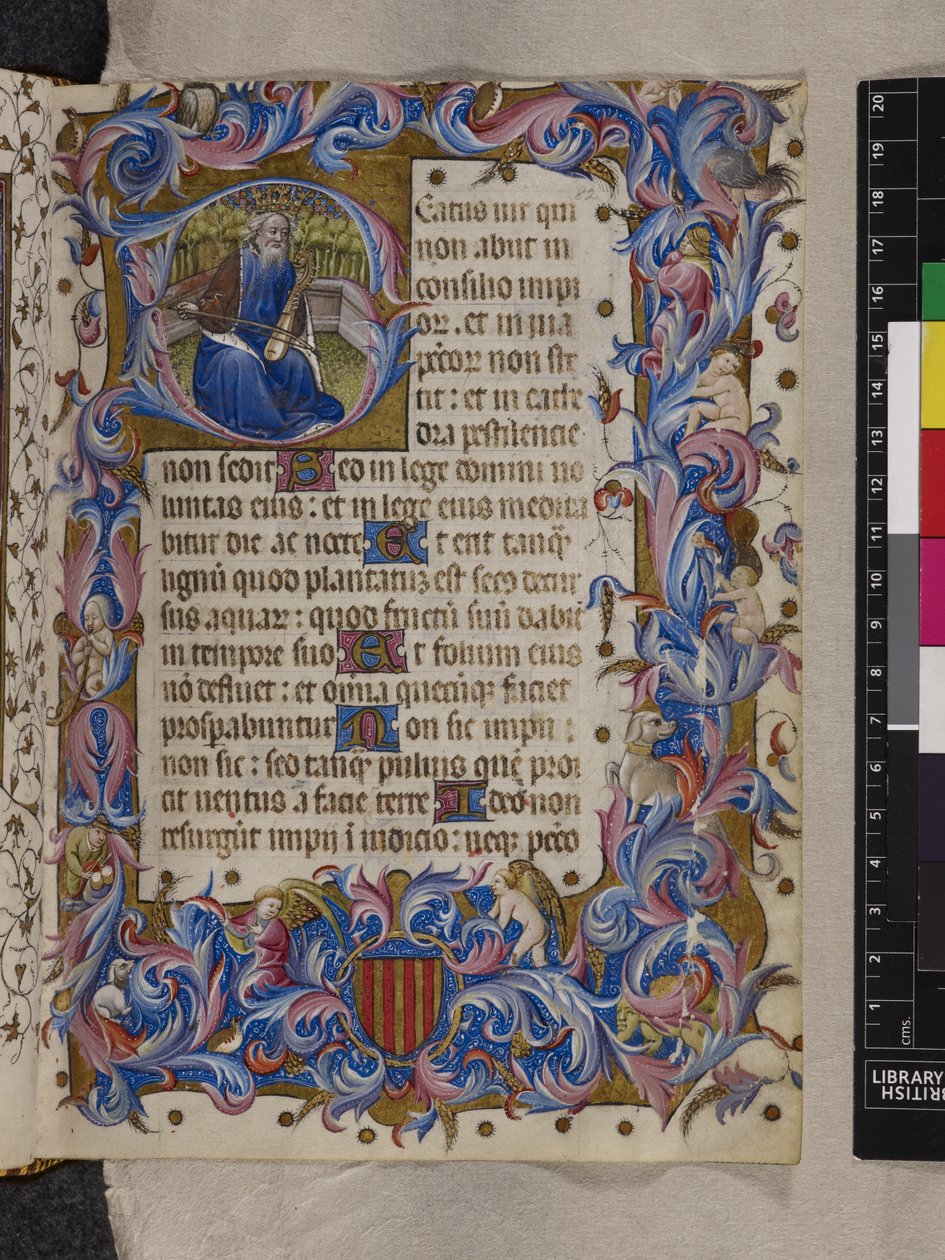 Beatus uir qui
non abiit in
consilio impi
oꝝ. et in uia
pctoꝝ non ste
tit : et in cathe
dra pestilencie
non sedit Sed in lege domini uo
luntas eius : et in lege eius medita
bitur die ac nocte Et erit tanq̄
lignū quod plantatuʒ est secꝯ decur
sus aquaꝝ : quod fructū suū dabit
in tempore suo Et folium eius
nō defluet : et oīa quecūqꝫ faciet
prosꝑabuntur Non sic impii
non sic : sed tanq̄ puluis quē proi
cit uentus a facie terre Ideo non
resurgūt impii ī iudicio : neqꝫ pcco
82
20
19
18
17
16
15
14
13
12
11
10
9
8
7
6
5
4
3
2
1
cms.
LIBRARY
BRITISH